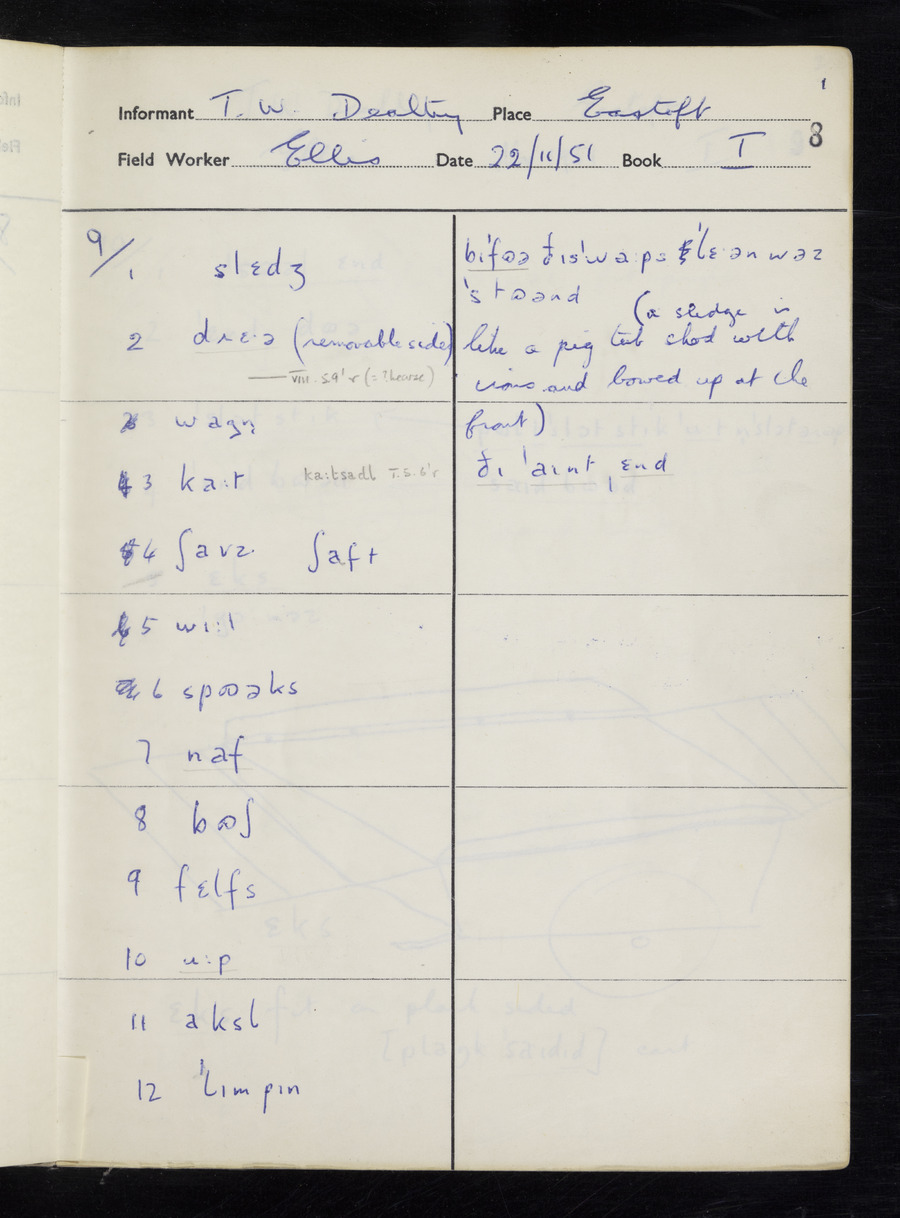 1
Informant T. W. Dealtry Place Eastoft
8
Field Worker Ellis Date 22/11/51 Book I
9/1 slɛdʒ
2 drɛ·ə (removable side)
VIII. 5.9'r (= ? hearse)
wagn̩
3 ka:t ka:tsadl I.5.6'r
4 ʃavz ʃaft
5 wi:l
6 spɷəks
7 naf
8 bɷʃ
9 fɛlfs
10 u:p
11 aksl
12 ˈlimpin
bɪˈfɷə ðɪsˈwa:ps ˈlɛ·ən wəz
ˈstɷənd
(a sledge is
like a pig tub shod with
irons and bowed up at the
front)
ðɪ ˈaɪnt ˌɛnd